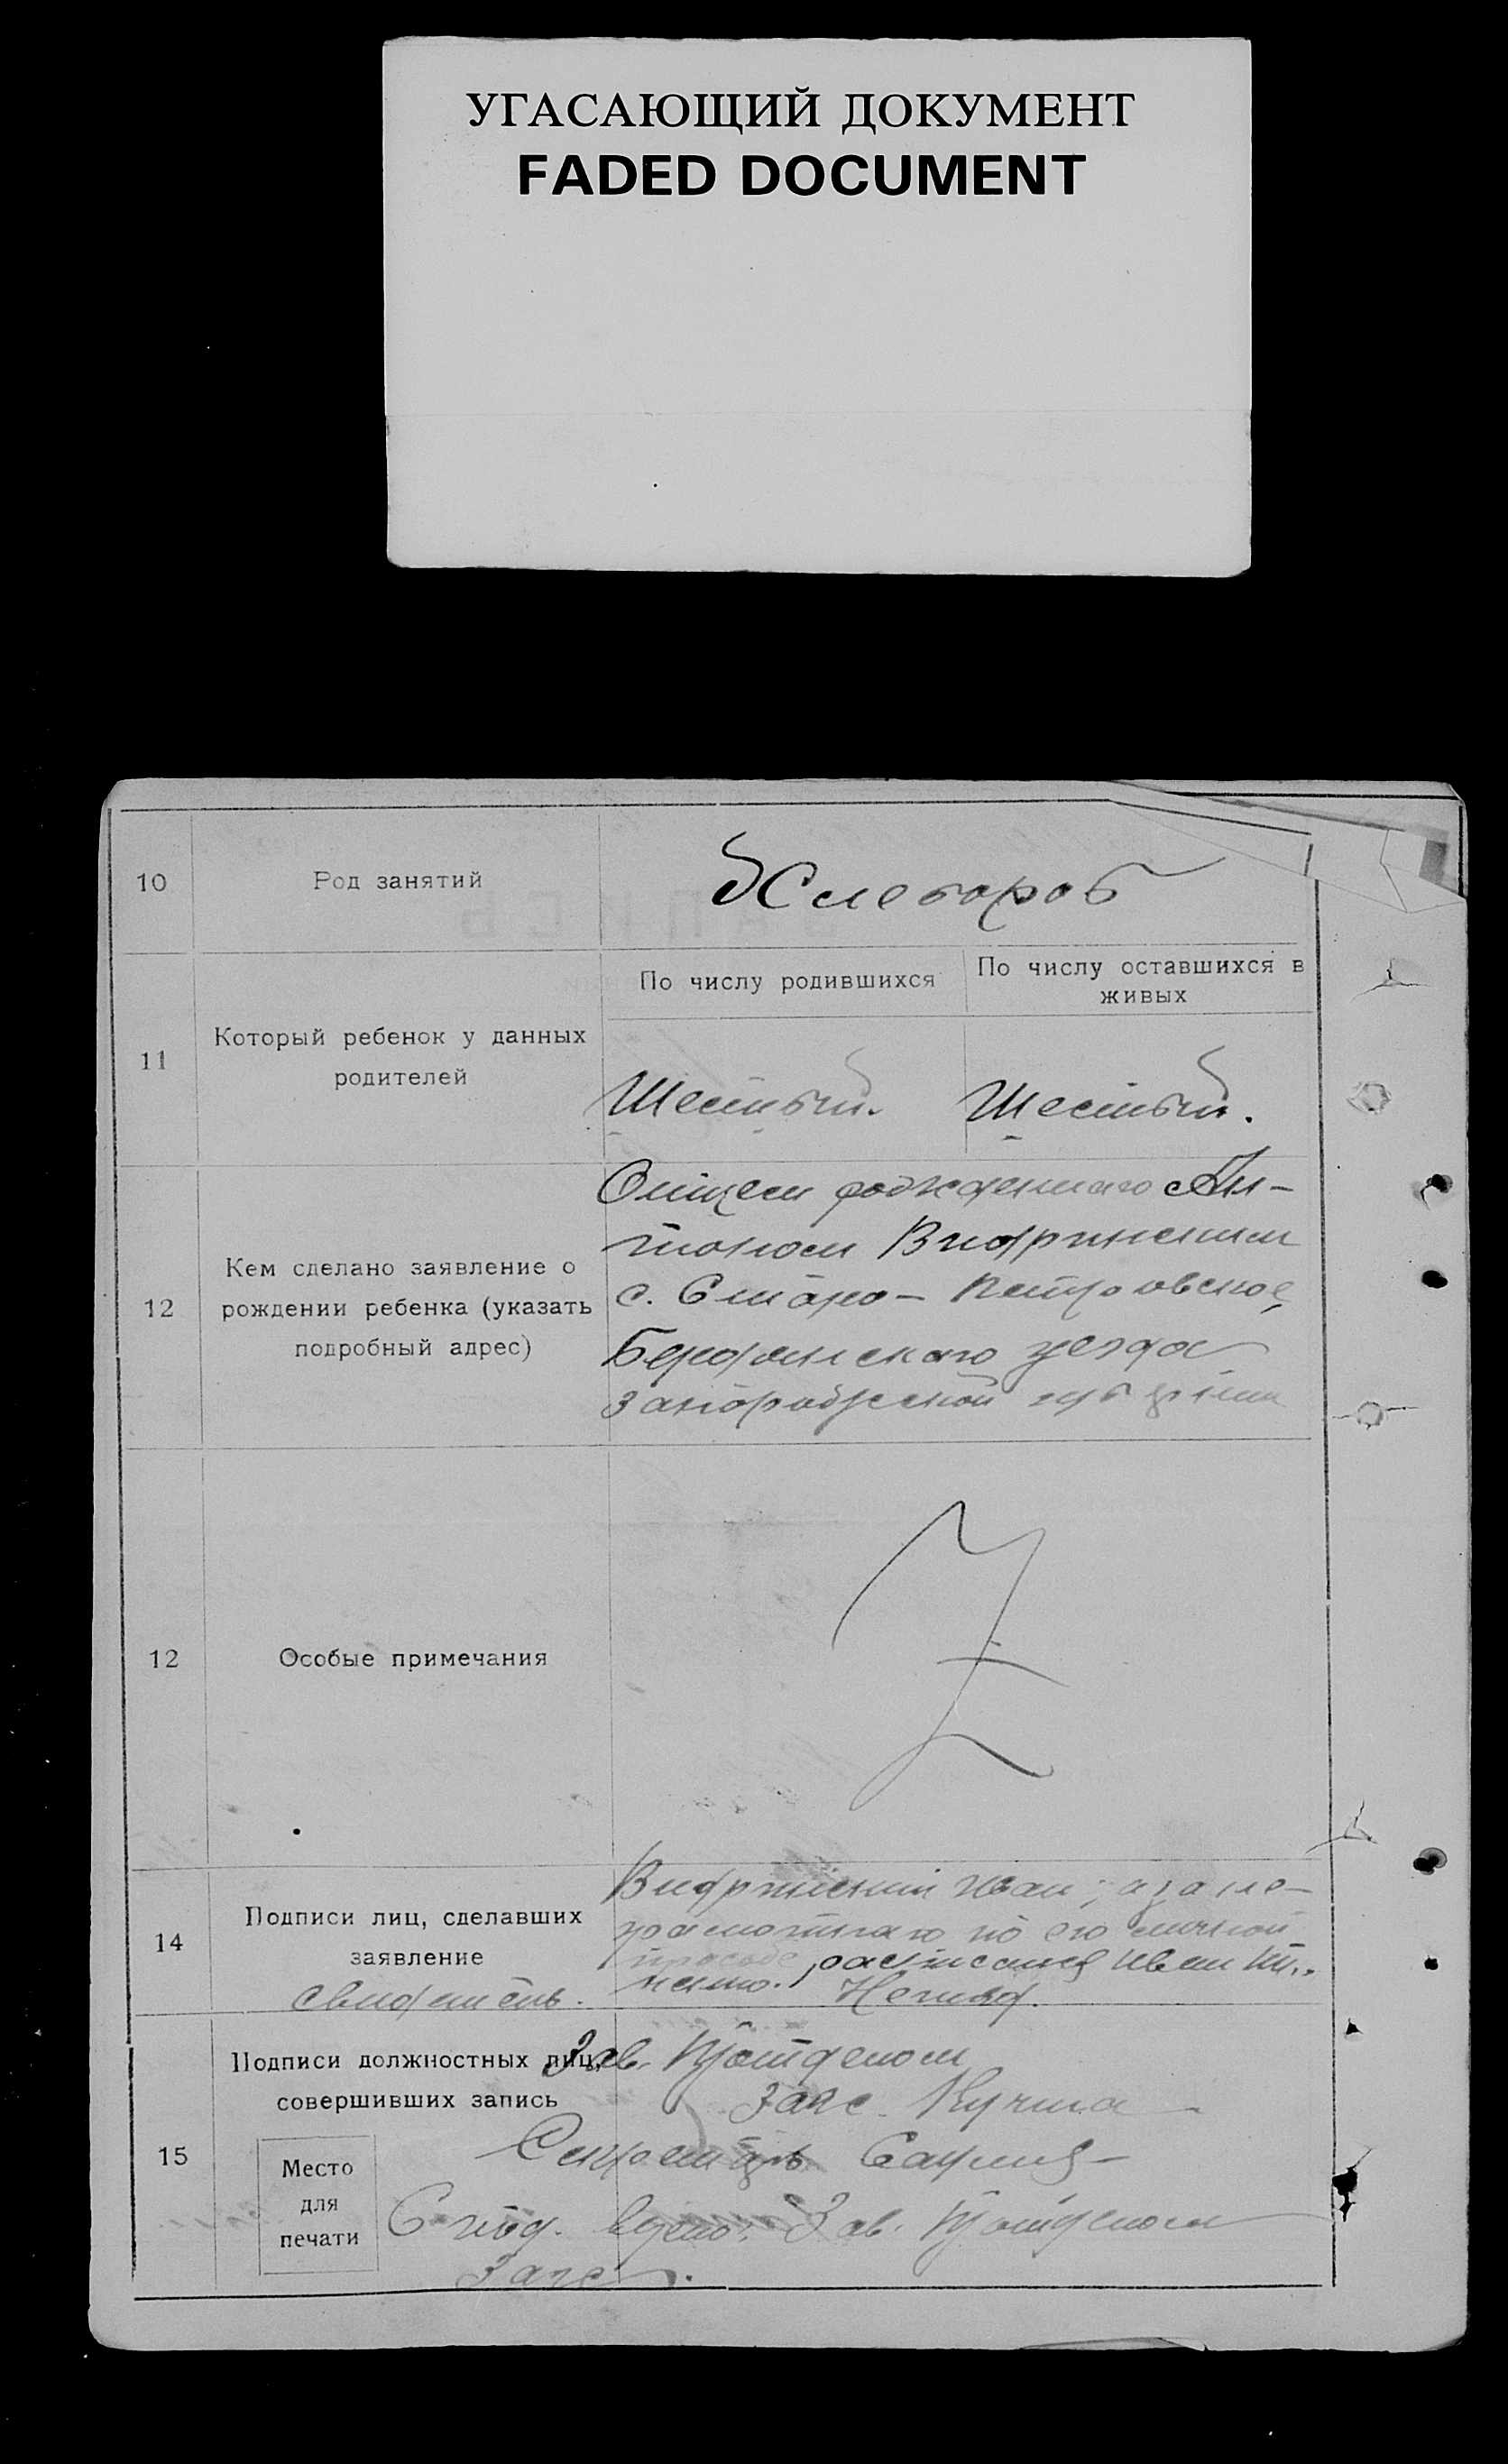 УГАСАЮЩИЙ ДОКУМЕНТ
FADED DOCUMENT
10
Род занятий
Хлебороб
11
Который ребенок у данных
родителей
По числу родившихся
По числу оставшихся в
живых
Шестый.
Шестый.
12
Кем сделано заявление о
рождении ребенка (указать
подробный адрес)
Отцем рожденнаго Ан-
тоном
с. Старо-Петровское,
Бердянскаго уезда
Запорожской губернии
12
Особые примечания
14
Подписи лиц, сделавших
заявление
свидетель.
Иван, а за не-
грамотнаго по его личной
просьбе росписался Иван
15
Подписи должностных лиц,
совершивших запись
Место
для
печати
Зав.
Загс. Кучма
Секретарь
С под. верно: Зав.
Загс.